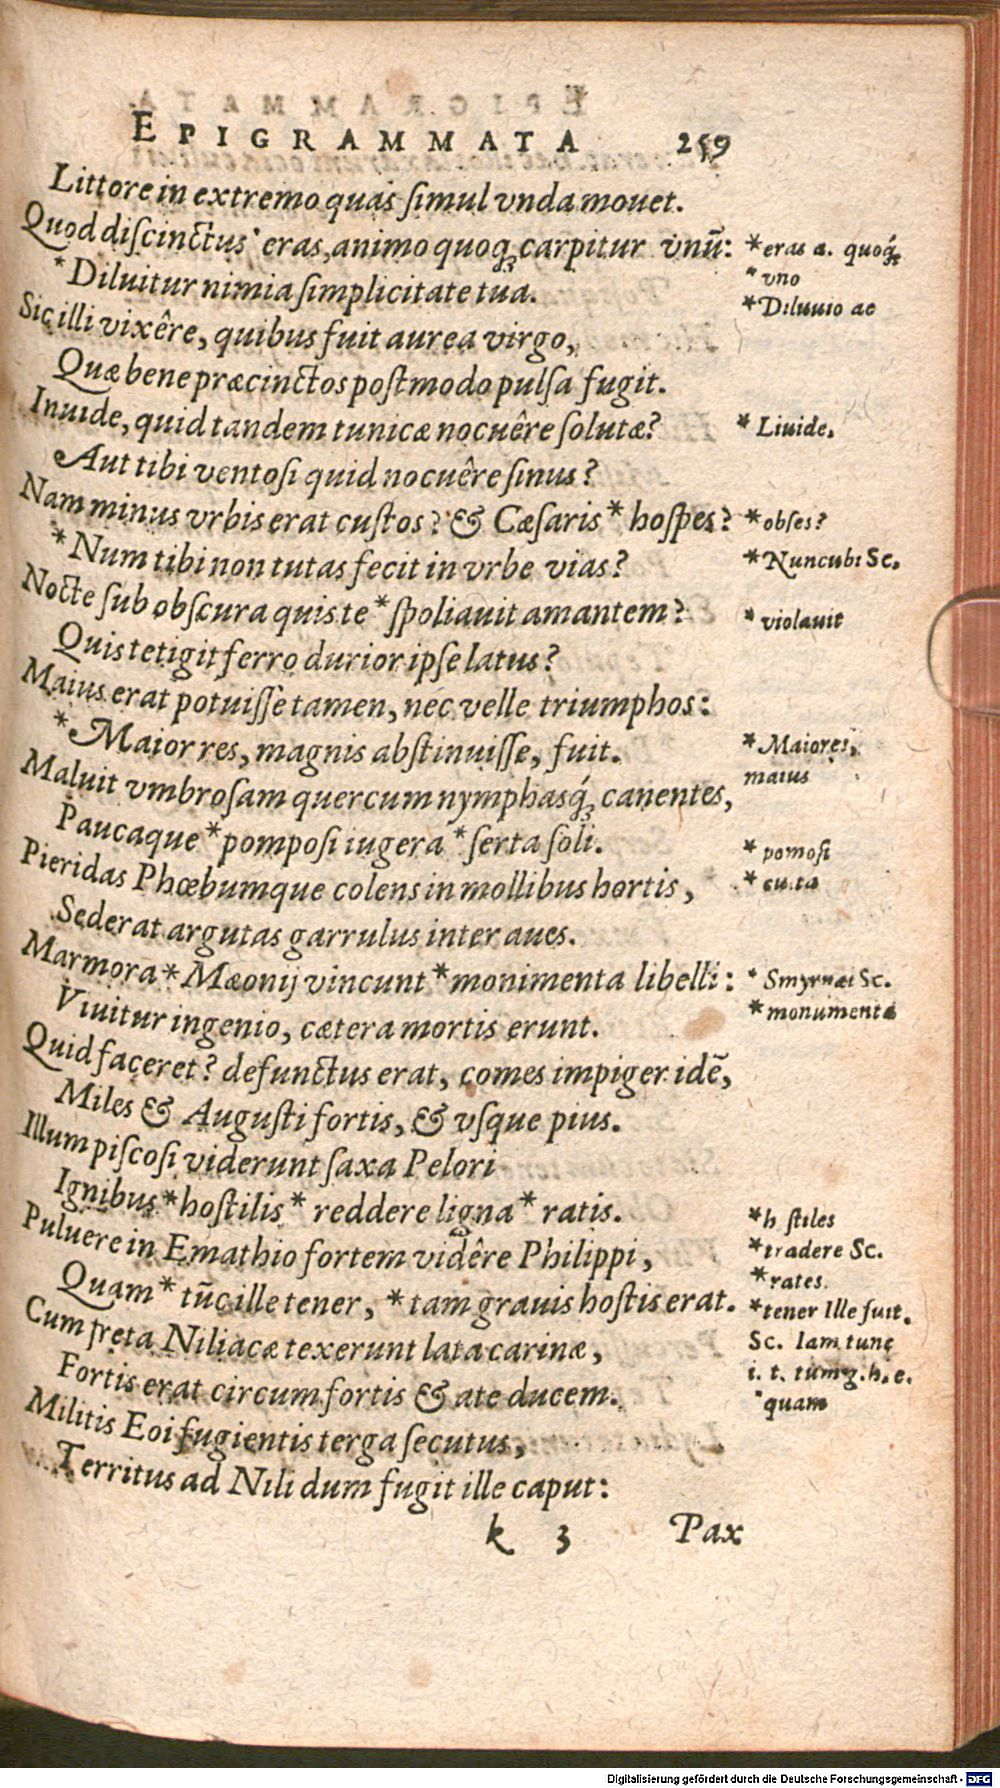 EPIGRAMMATA 259
Littore in extremo quas ſimul vnda mouet.
Quod diſcinctus * eras, animo quoq; carpitur vnū:
* Diluitur nimia ſimplicitate tua.
Sic illi vixêre, quibus fuit aurea virgo,
Quæ bene præcinctos poſtmodo pulſa fugit.
Inuide, quid tandem tunicæ nocuêre ſolutæ?
Aut tibi ventoſi quid nocuêre ſinus?
Nam minus vrbis erat cuſtos? & Cæſaris * hoſpes?
* Num tibi non tutas fecit in vrbe vias?
Nocte ſub obſcura quis te * ſpoliauit amantem?
Quis tetigit ferro durior ipſe latus?
Maius erat potuiſſe tamen, nec velle triumphos:
* Maior res, magnis abſtinuiſſe, fuit.
Maluit vmbroſam quercum nymphasq́; canentes,
Paucaque * pompoſi iugera * ſerta ſoli.
Pieridas Phœbumque colens in mollibus hortis,
Sederat argutas garrulus inter aues.
Marmora * Mæonij vincunt * monimenta libelli:
Viuitur ingenio, cætera mortis erunt.
Quid faceret? defunctus erat, comes impiger idē,
Miles & Auguſti fortis, & vſque pius.
Illum piſcoſi viderunt ſaxa Pelori
Ignibus * hoſtilis * reddere ligna * ratis.
Puluere in Emathio fortem vidêre Philippi,
Quam * tūc ille tener, * tam grauis hoſtis erat.
Cum freta Niliacæ texerunt lata carinæ,
Fortis erat circum fortis & ate ducem.
Militis Eoi fugientis terga ſecutus,
Territus ad Nili dum fugit ille caput:
k 3 Pax
* eras a. quoq́;
* vno
* Diluuio ac
* Liuide.
* obſes?
* Nuncubi Sc.
* violauit
* Maiores,
maius
* pomoſi
* culta
* Smyrnæi Sc.
* monumenta
* h ſtiles
* tradere Sc.
* rates.
* tener Ille fuit.
Sc. Iam tunc
i. t. tūm g. h. e.
* quam
Digitalisierung gefördert durch die Deutsche Forschungsgemeinschaft - DFG